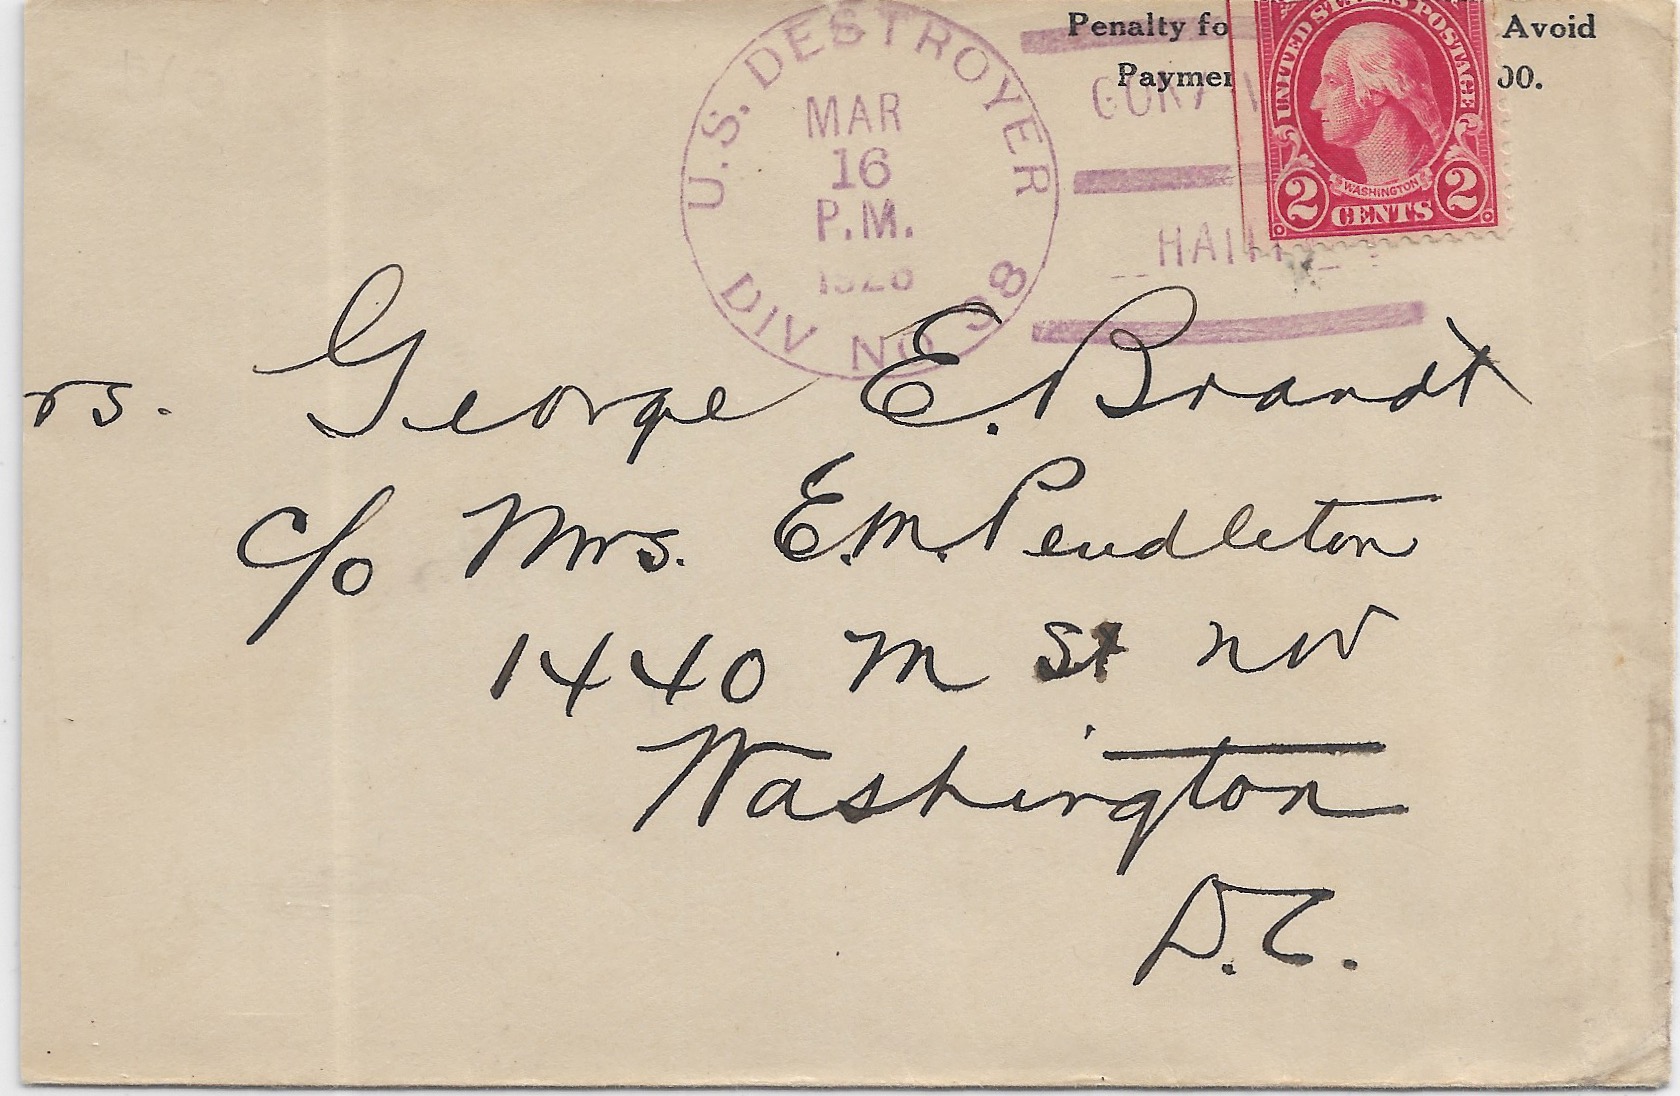 Penalty fo Avoid
Paymen 00.
U.S. DESTROYER
MAR
16
P.M.
1926
DIV NO 38
HAITI
UNITED STATES POSTAGE
WASHINGTON
2 CENTS 2
rs. George E. Brandt
c/o Mrs. E.M. Pendleton
1440 M St NW
Washington
D.C.